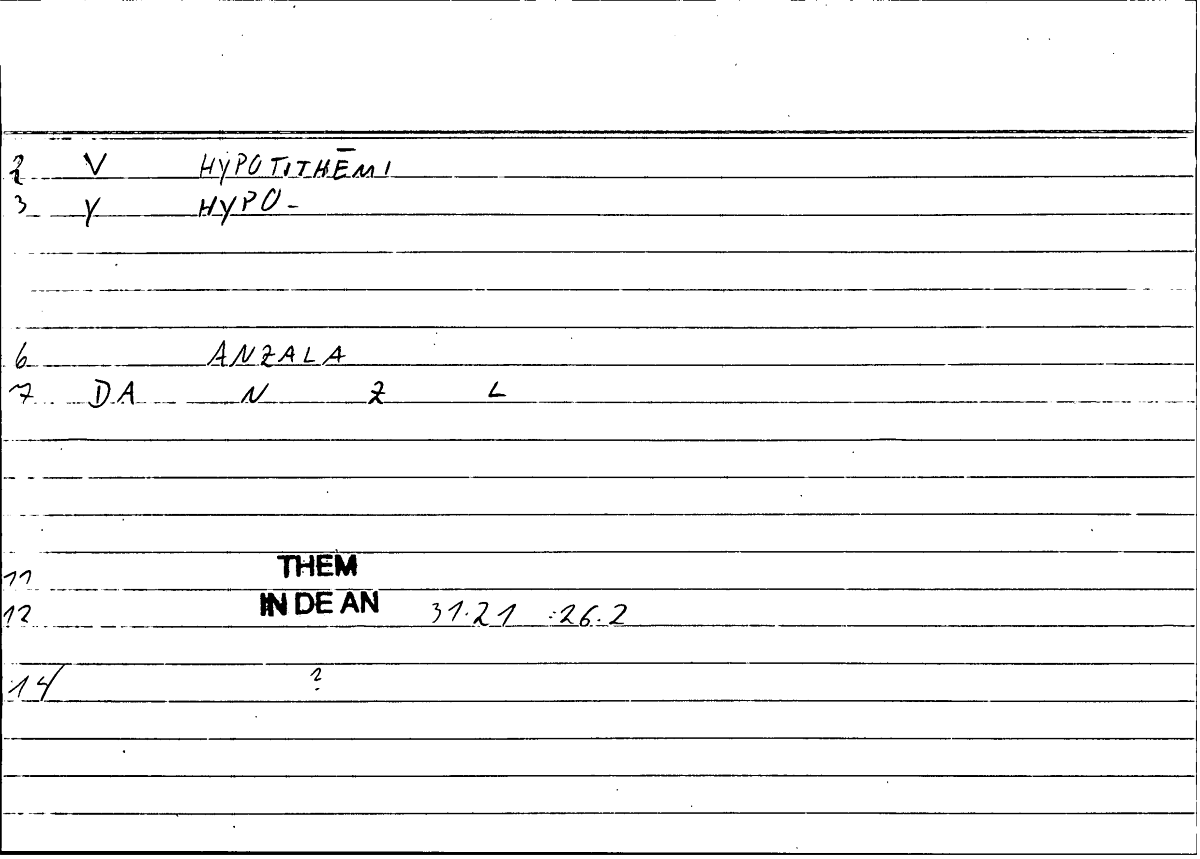 2 V HYPOTITHĒMI
3 Y HYPO-
6 ANZALA
7 DA N Z L
11 THEM
12 IN DE AN 31.21 :26.2
14 ?